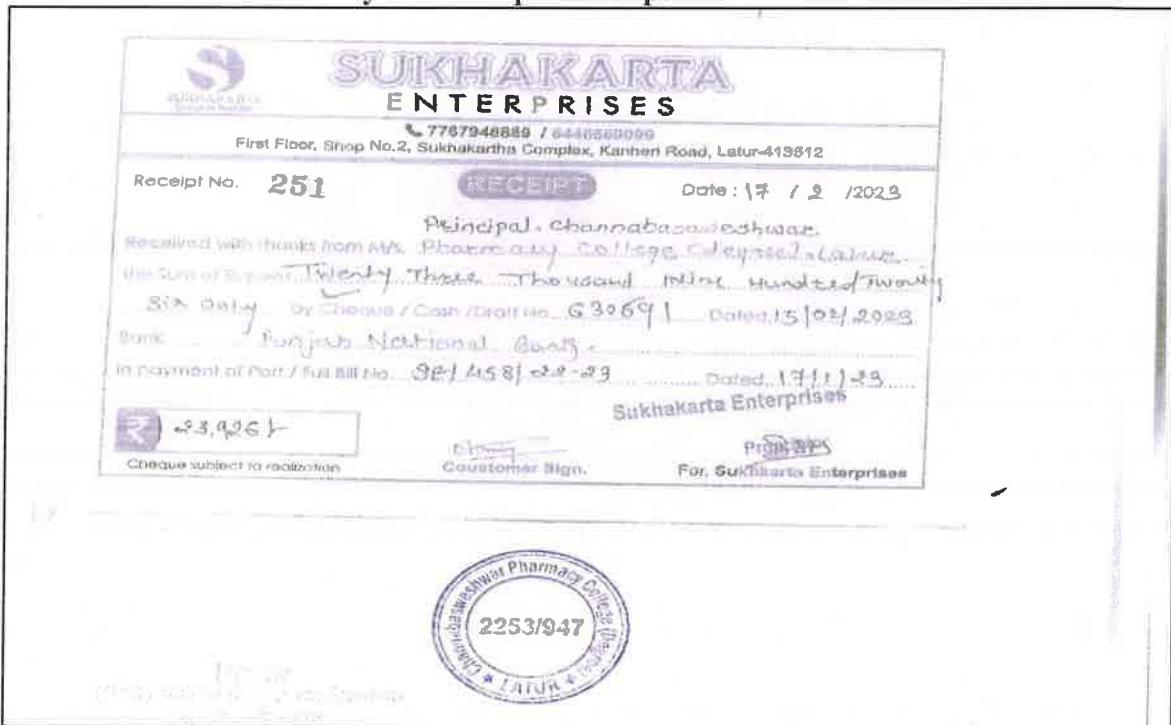 SUKHAKARTA
ENTERPRISES
7767946889 /
First Floor, Shop No.2, Sukhakartha Complex, Kanheri Road, Latur-413512
Receipt No. 251 RECEIPT Date : 17 / 2 /2023
Principal. Channabasweshwar
Received with thanks from M/s. Pharmacy College (degree) Latur
the Sum of Rupees Twenty Three Thousand Nine Hundred Twenty
Six Only by Cheque / Cash / Draft No. 630691 Dated 15/02/2023
Bank Punjab National Bank.
In payment of Part / Full Bill No. SE/458/22-23 Dated 17/1/23
Sukhakarta Enterprises
₹ 23,926/-
Cheque subject to realization Coustomer Sign. For, Sukhkarta Enterprises
Channabasweshwar Pharmacy College (Degree)
2253/947
LATUR